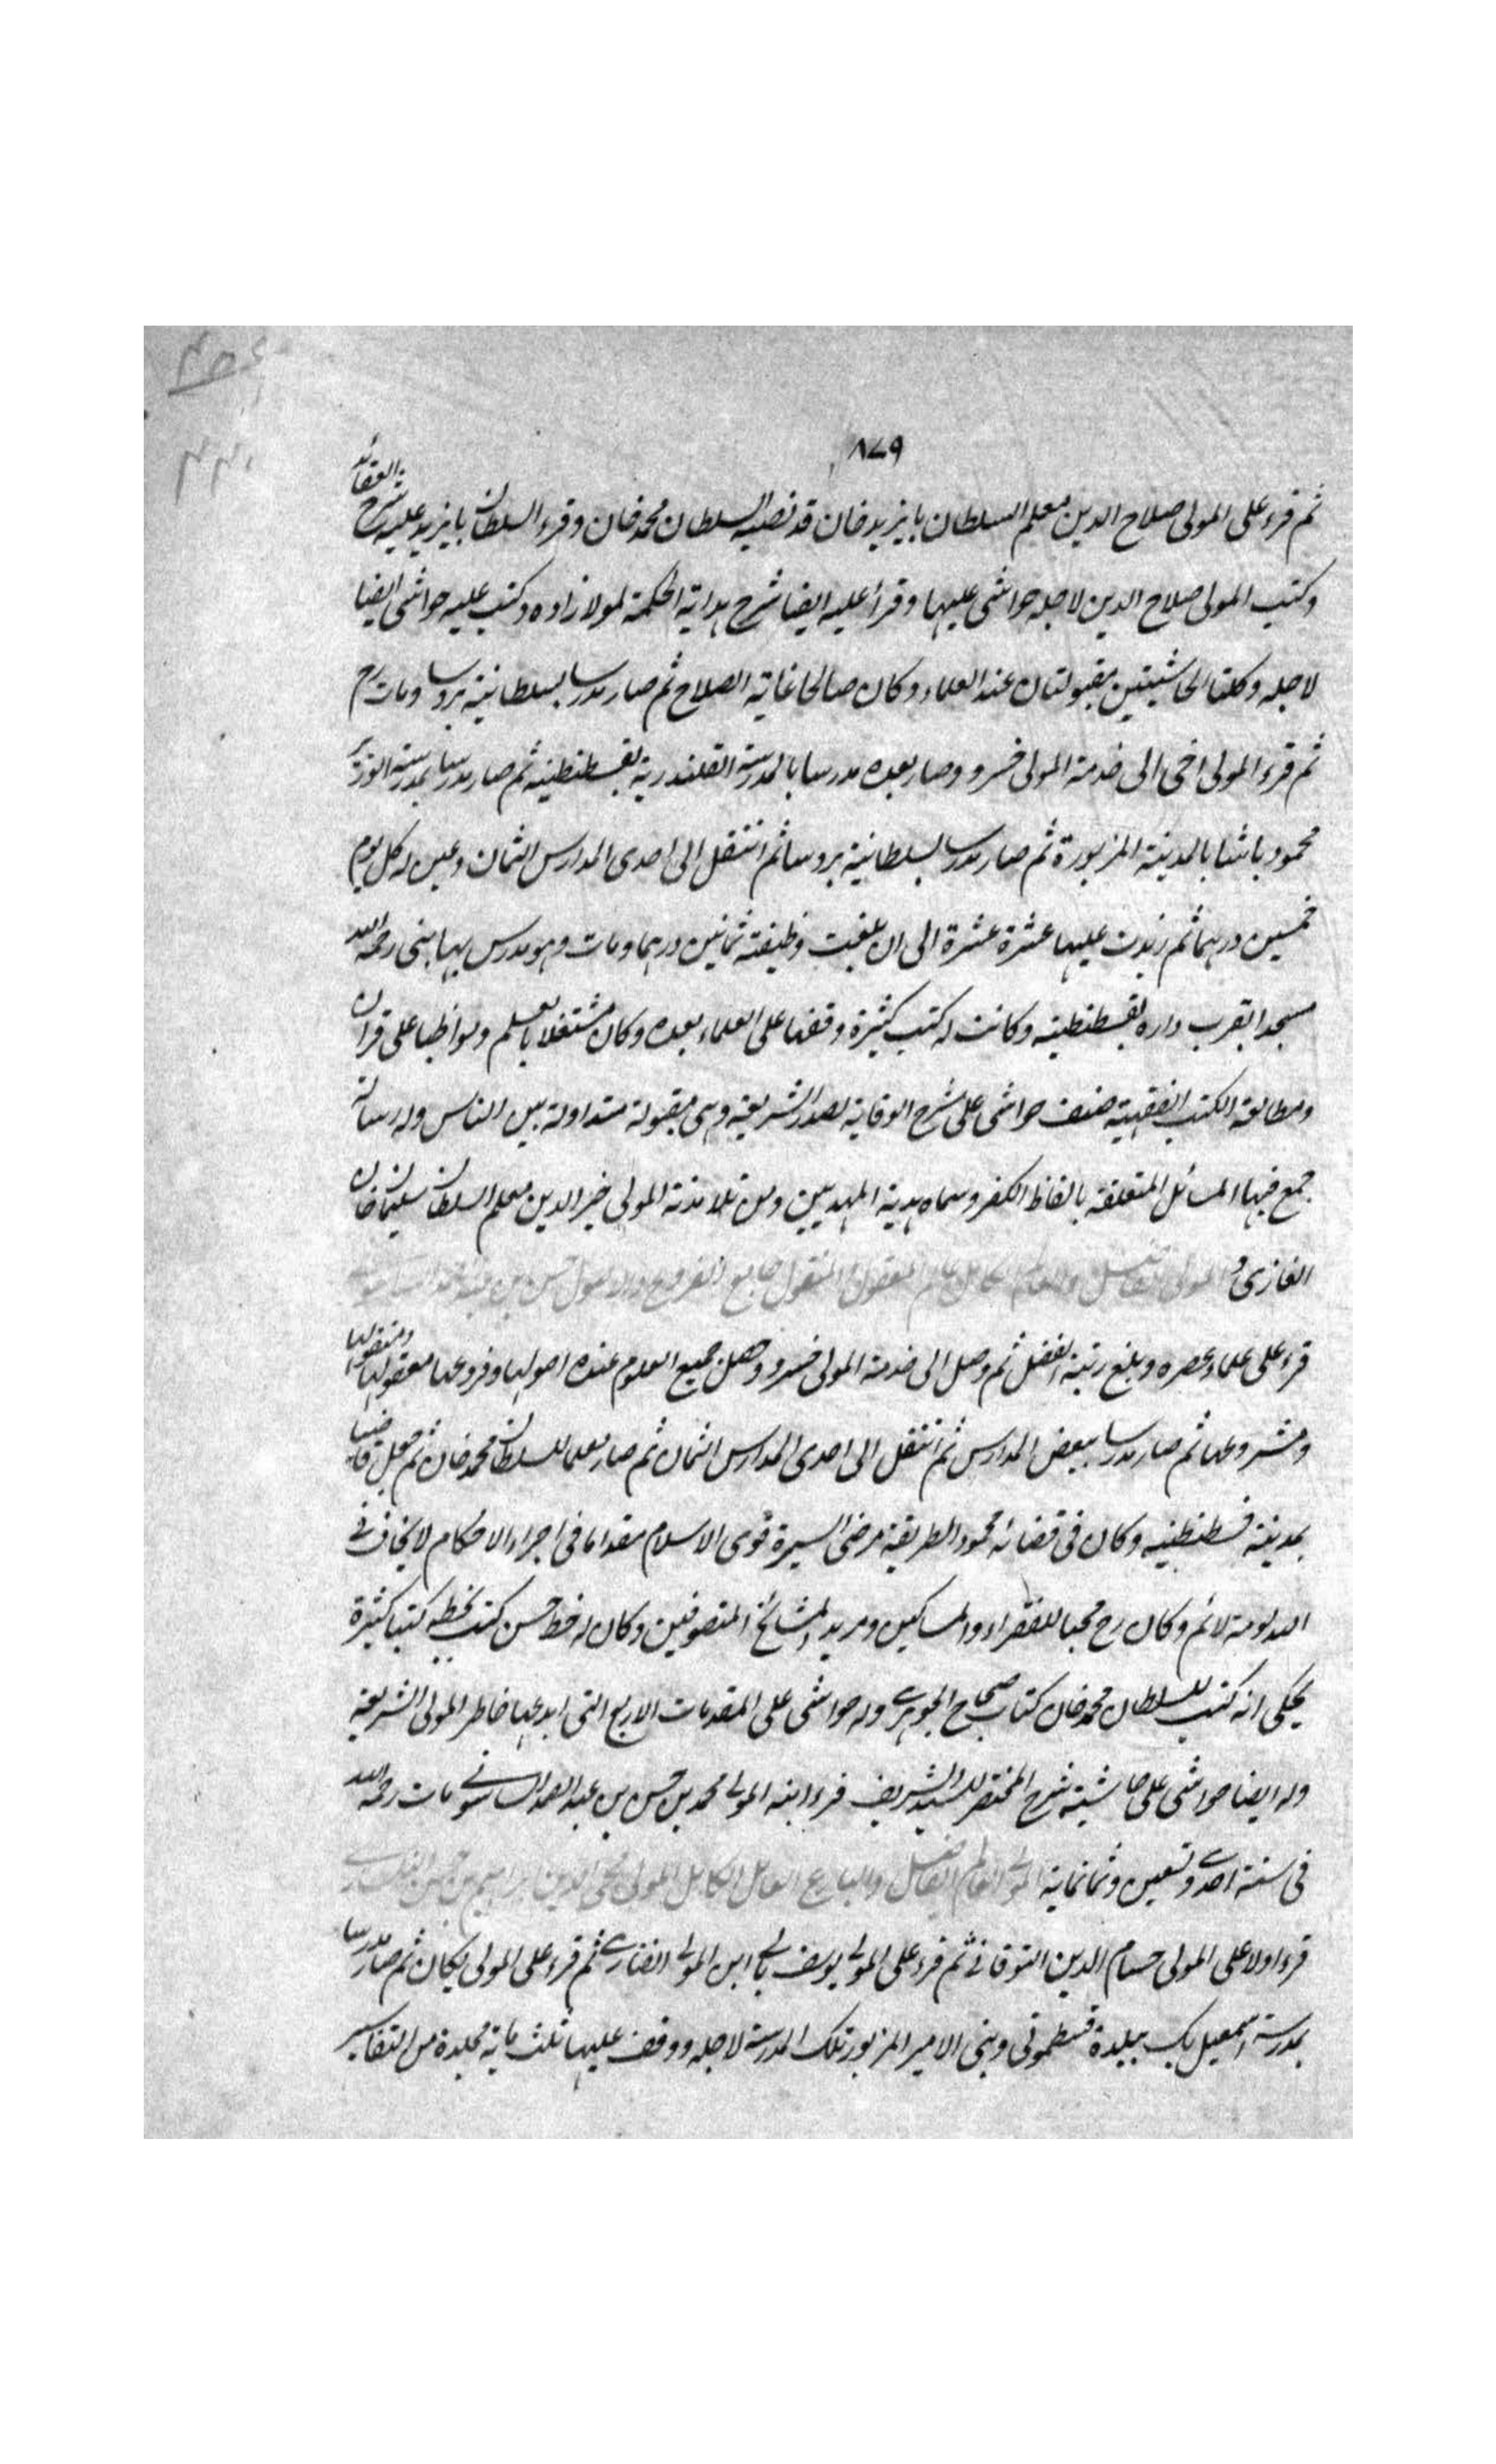 ٨٧٩
ثم قرء على المولى صلاح الدين معلم السلطان بايزيد خان قد نصبه السلطان محمد خان وقرء السلطان بايزيد عليه شرح العقائد
وكتب المولى صلاح الدين لاجله حواشى عليها وقرأ عليه ايضا شرح هداية الحكمة لمولانا زاده وكتب عليه حواشى ايضا
لاجله وكلتا الحاشيتين مقبولتان عند العلماء وكان صالحا غاية الصلاح ثم صار مدرسا بسلطانية بروسا ومات رح
ثم قرء المولى اخى الى خدمة المولى خسرو وصار بعده مدرسا بالمدرسة القلندرية بقسطنطينه ثم صار مدرسا بمدرسة الوزير
محمود باشا بالمدينة المزبورة ثم صار مدرسا بسلطانية بروسا ثم انتقل الى احدى المدارس الثمان وعين له كل يوم
خمسين درهما ثم زيدت عليها عشرة عشرة الى ان بلغت وظيفته ثمانين درهما ومات وهو مدرس بها بنى رحمه الله
مسجدا بقرب داره بقسطنطينه وكانت له كتب كثيرة وقفها على العلماء بعده وكان مشتغلا بالعلم ومواظبا على قران
ومطالعة الكتب الفقهية صنف حواشى على شرح الوقاية لصدر الشريعة وهى مقبولة متداولة بين الناس وله رسالة
جمع فيها المسائل المتعلقة بالفاظ الكفر وسماه هدية المهديين ومن تلامذته المولى خير الدين معلم السلطان سليمان خان
الغازى و المولى الفاضل والعالم الكامل عالم المعقول والمنقول جامع الفروع والاصول حسن بن عبد الصمد السامسونى
قرء على علماء عصره وبلغ رتبة الفضل ثم وصل الى خدمة المولى خسرو وحصل جميع العلوم عنده اصولها وفروعها معقولها ومنقولها
ومشروعها ثم صار مدرسا ببعض المدارس ثم انتقل الى احدى المدارس الثمان ثم صار معلما للسلطان محمد خان ثم جعل قاضيا
بمدينة قسطنطنيه وكان فى قضائه محمود الطريقة مرضى السيرة قوى الاسلام مقداما فى اجراء الاحكام لا يخاف فى
الله لومة لائم وكان رح محبا للفقراء والمساكين ومريدا لمشائخ المتصوفين وكان له خط حسن كتب بخطه كتبا كثيرة
يحكى انه كتب للسلطان محمد خان كتاب صحاح الجوهرى وله حواشى على المقدمات الاربع التى ابدعها خاطر المولى الشريعة
وله ايضا حواشى على حاشية شرح المختصر للسيد الشريف قرء ابنه المولى محمد بن حسن بن عبد الصمد السامسونى مات رحمه الله
فى سنة احدى وتسعين وثمانماية المولى العالم الفاضل والبارع العامل الكامل المولى محيى الدين
قرء اولا على المولى حسام الدين التوقاتى ثم قرء على المولى يوسف بالى ابن المولى الفنارى ثم قرء على المولى يكان ثم صار مدرسا
بمدرسة اسمعيل بك ببلدة قسطمونى وبنى الامير المزبور تلك المدرسة لاجله ووقف عليها ثلث ماية مجلدة من التفاسير